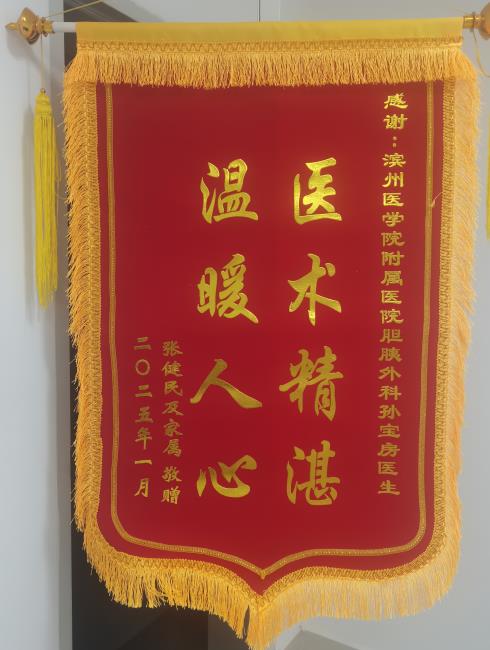 感谢：滨州医学院附属医院胆胰外科孙宝房医生
医术精湛
温暖人心
张健民及家属 敬赠
二〇二五年一月